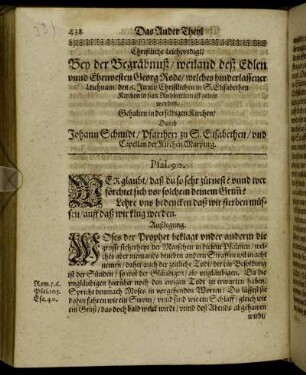 438 Das Ander Theyl
Christliche Leichpredigt/
Bey der Begräbnuß/ weiland deß Edlen
vnnd Ehrnvesten Georg Rode/ welches hinderlassener
Leichnam/ den 5. Junij/ Christlichen in S. Elisabethen
Kirchen in sein Ruhbettlein
worden.
Gehalten in derselbigen Kirchen/
Durch
Johann Schmidt/ Pfarrherr zu S. Elisabethen/ vnd
Capellan der Kirchen Marpurg.
Psal. 90.
WEr glaubt/ daß du so sehr zürnest? vnnd wer
förchtet sich vor solchem deinem Grim?
Lehre vns bedencken daß wir sterben müs-
sen/ auff daß wir klug werden.
Außlegung.
MOses der Prophet beklagt vnder andern die
grosse sicherheyt der Menschen in diesem Psalmen/ wel-
ches aber niemands neben andern Straffen will in acht
nemen/ daher auch der zeitliche Todt/ der ein Bezahlung
ist der Sünden/ so wol der Gläubigen/ als vngläubigen. Da die
vngläubigen hierüber noch den ewigen Todt zu erwarten haben.
Rom. 5. 6. Spricht demnach Moses in vorgehenden Worten: Du lässest sie
Psal. 103. dahin fahren wie ein Strom/ vnnd sind wie ein Schlaff/ gleich wie
Esa. 40. ein Graß/ das doch bald welck wirdt/ vnnd deß Abends abgehawen
wirdt/